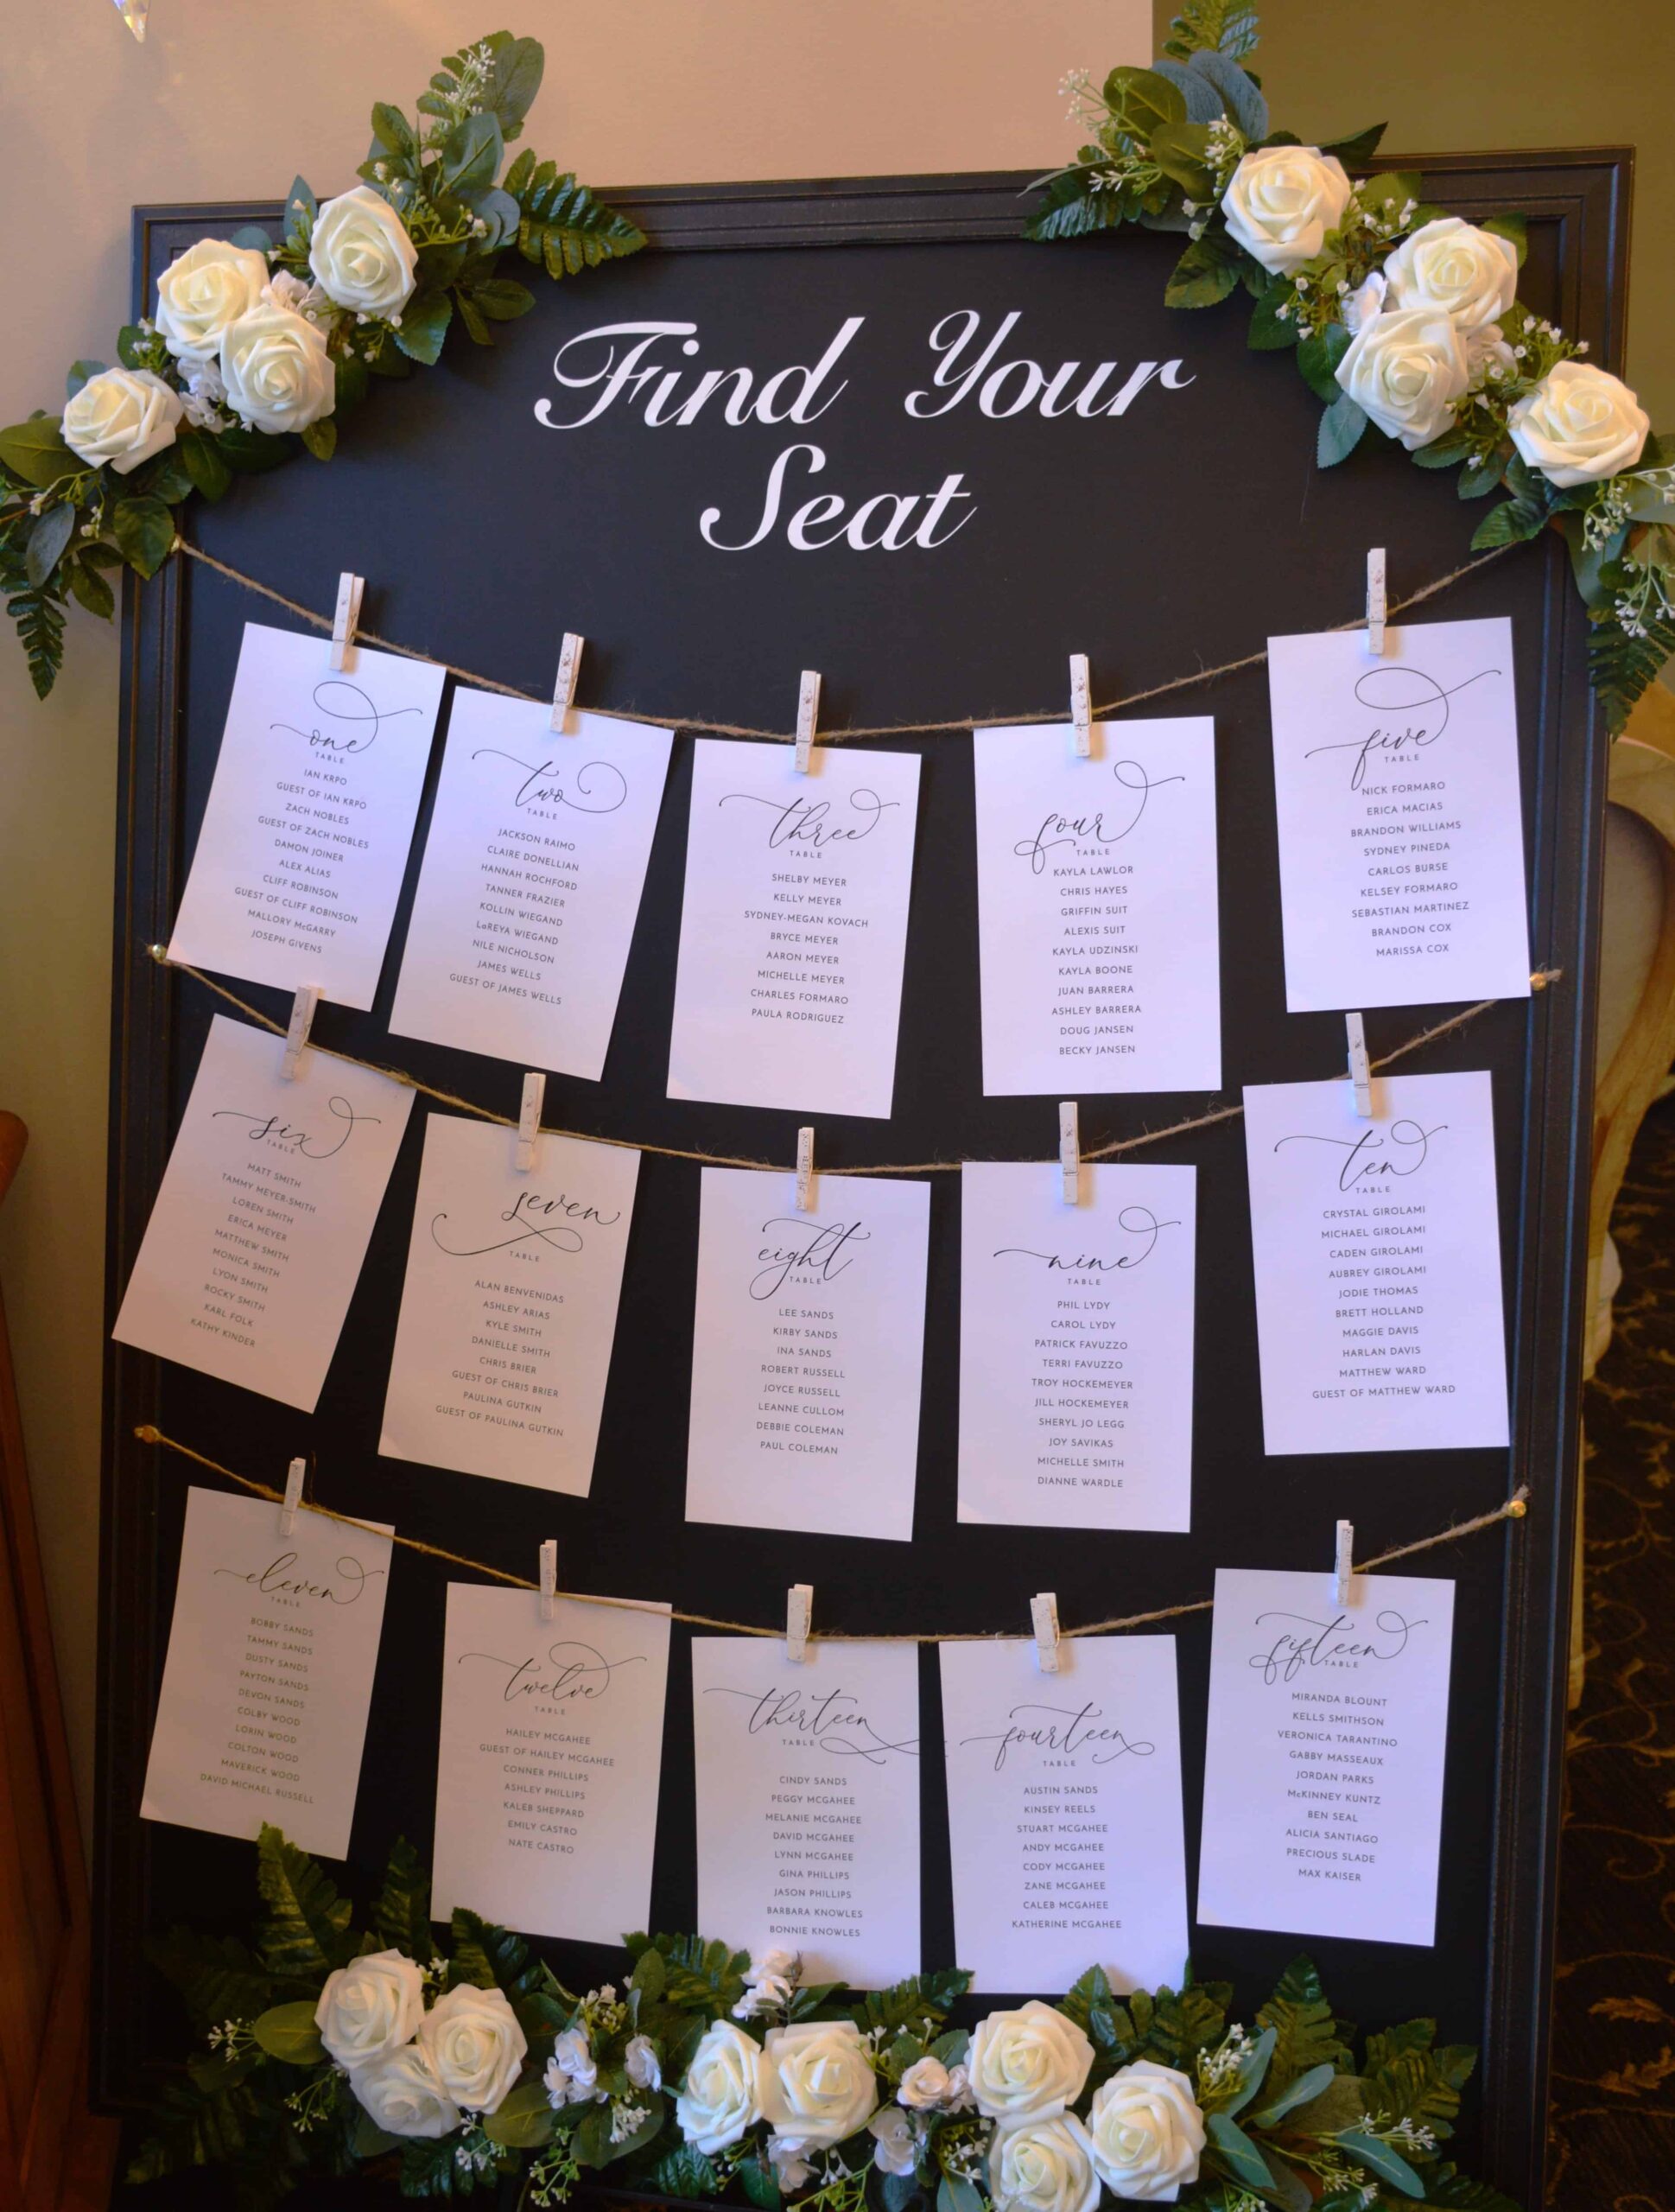 Find Your
Seat
one
TABLE
IAN KRPO
GUEST OF IAN KRPO
ZACH NOBLES
GUEST OF ZACH NOBLES
DAMON JOINER
ALEX ALIAS
CLIFF ROBINSON
GUEST OF CLIFF ROBINSON
MALLORY McGARRY
JOSEPH GIVENS
two
TABLE
JACKSON RAIMO
CLAIRE DONELLIAN
HANNAH ROCHFORD
TANNER FRAZIER
KOLLIN WIEGAND
LaREYA WIEGAND
NILE NICHOLSON
JAMES WELLS
GUEST OF JAMES WELLS
three
TABLE
SHELBY MEYER
KELLY MEYER
SYDNEY-MEGAN KOVACH
BRYCE MEYER
AARON MEYER
MICHELLE MEYER
CHARLES FORMARO
PAULA RODRIGUEZ
four
TABLE
KAYLA LAWLOR
CHRIS HAYES
GRIFFIN SUIT
ALEXIS SUIT
KAYLA UDZINSKI
KAYLA BOONE
JUAN BARRERA
ASHLEY BARRERA
DOUG JANSEN
BECKY JANSEN
five
TABLE
NICK FORMARO
ERICA MACIAS
BRANDON WILLIAMS
SYDNEY PINEDA
CARLOS BURSE
KELSEY FORMARO
SEBASTIAN MARTINEZ
BRANDON COX
MARISSA COX
six
TABLE
MATT SMITH
TAMMY MEYER-SMITH
LOREN SMITH
ERICA MEYER
MATTHEW SMITH
MONICA SMITH
LYON SMITH
ROCKY SMITH
KARL FOLK
KATHY KINDER
seven
TABLE
ALAN BENVENIDAS
ASHLEY ARIAS
KYLE SMITH
DANIELLE SMITH
CHRIS BRIER
GUEST OF CHRIS BRIER
PAULINA GUTKIN
GUEST OF PAULINA GUTKIN
eight
TABLE
LEE SANDS
KIRBY SANDS
INA SANDS
ROBERT RUSSELL
JOYCE RUSSELL
LEANNE CULLOM
DEBBIE COLEMAN
PAUL COLEMAN
nine
TABLE
PHIL LYDY
CAROL LYDY
PATRICK FAVUZZO
TERRI FAVUZZO
TROY HOCKEMEYER
JILL HOCKEMEYER
SHERYL JO LEGG
JOY SAVIKAS
MICHELLE SMITH
DIANNE WARDLE
ten
TABLE
CRYSTAL GIROLAMI
MICHAEL GIROLAMI
CADEN GIROLAMI
AUBREY GIROLAMI
JODIE THOMAS
BRETT HOLLAND
MAGGIE DAVIS
HARLAN DAVIS
MATTHEW WARD
GUEST OF MATTHEW WARD
eleven
TABLE
BOBBY SANDS
TAMMY SANDS
DUSTY SANDS
PAYTON SANDS
DEVON SANDS
COLBY WOOD
LORIN WOOD
COLTON WOOD
MAVERICK WOOD
DAVID MICHAEL RUSSELL
twelve
TABLE
HAILEY MCGAHEE
GUEST OF HAILEY MCGAHEE
CONNER PHILLIPS
ASHLEY PHILLIPS
KALEB SHEPPARD
EMILY CASTRO
NATE CASTRO
thirteen
TABLE
CINDY SANDS
PEGGY MCGAHEE
MELANIE MCGAHEE
DAVID MCGAHEE
LYNN MCGAHEE
GINA PHILLIPS
JASON PHILLIPS
BARBARA KNOWLES
BONNIE KNOWLES
fourteen
TABLE
AUSTIN SANDS
KINSEY REELS
STUART MCGAHEE
ANDY MCGAHEE
CODY MCGAHEE
ZANE MCGAHEE
CALEB MCGAHEE
KATHERINE MCGAHEE
fifteen
TABLE
MIRANDA BLOUNT
KELLS SMITHSON
VERONICA TARANTINO
GABBY MASSEAUX
JORDAN PARKS
McKINNEY KUNTZ
BEN SEAL
ALICIA SANTIAGO
PRECIOUS SLADE
MAX KAISER